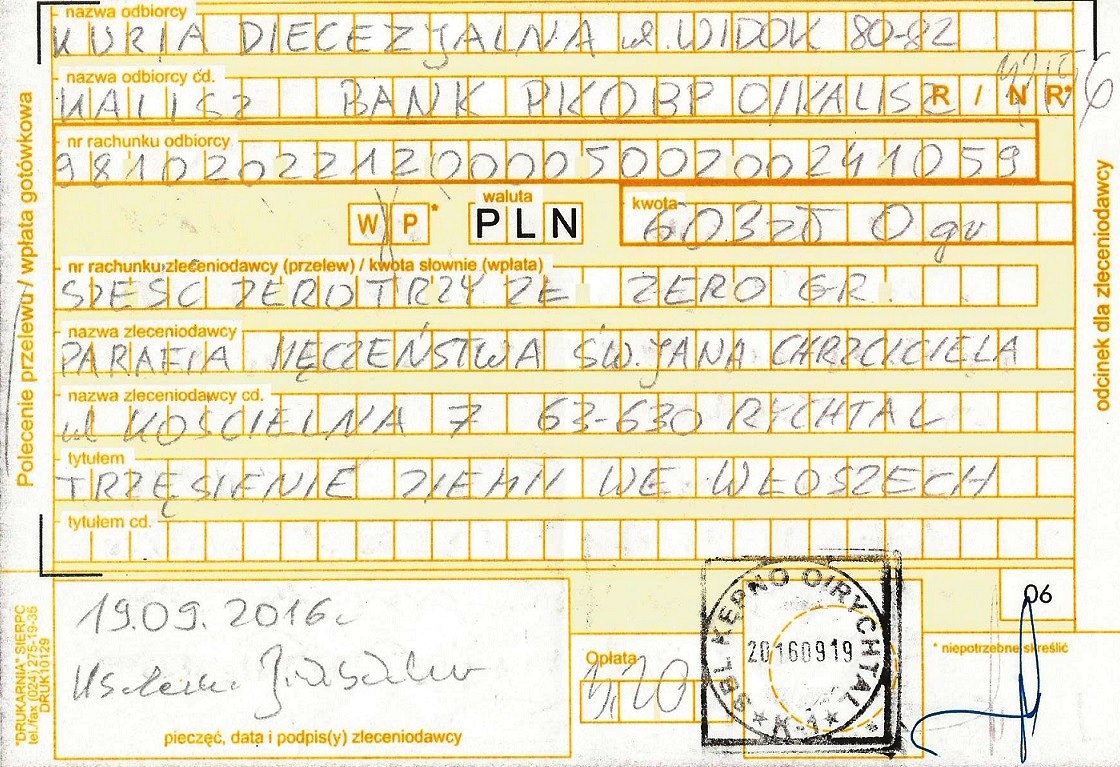 nazwa odbiorcy
KURIA DIECEZJALNA ul. WIDOK 80-82
nazwa odbiorcy cd.
KALISZ BANK PKOBP O/KALISZ R / N R*
nr rachunku odbiorcy
98102022120000500200241059
W P * waluta PLN kwota 603 zł 0 gr
nr rachunku zleceniodawcy (przelew) / kwota słownie (wpłata)
SZEŚĆ ZERO TRZY ZŁ ZERO GR.
nazwa zleceniodawcy
PARAFIA MĘCZEŃSTWA ŚW. JANA CHRZCICIELA
nazwa zleceniodawcy cd.
ul KOŚCIELNA 7 63-630 RYCHTAL
tytułem
TRZĘSIENIE ZIEMI WE WŁOSZECH
tytułem cd.
06
19.09.2016r
pieczęć, data i podpis(y) zleceniodawcy
Opłata
3,20
SBL KĘPNO O/RYCHTAL
20160919
K-1
* niepotrzebne skreślić
Polecenie przelewu / wpłata gotówkowa
odcinek dla zleceniodawcy
"DRUKARNIA" SIERPC
tel./fax (024) 275-19-35
DRUK 10129